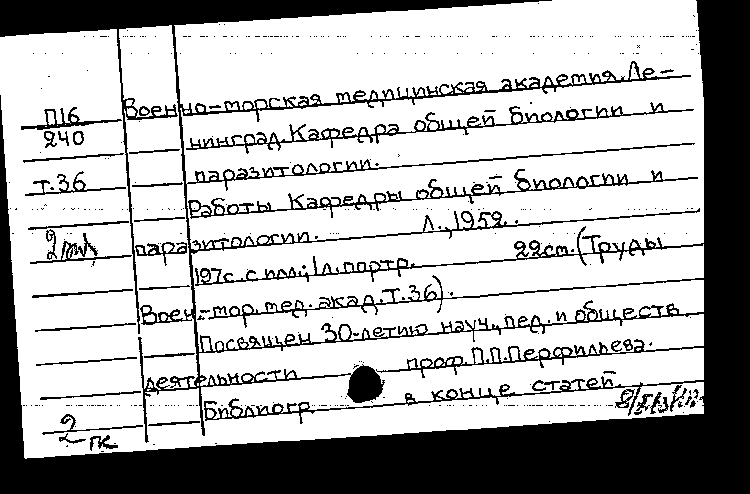 П16
240
т.36
Военно-морская медицинская академия. Ле-
нинград. Кафедра общей биологии и
паразитологии.
Работы Кафедры общей биологии и
паразитологии. Л., 1952.
197с. с илл; 1л. портр. 22см. (Труды
Воен.-мор. мед. акад. Т.36).
Посвящен 30-летию науч., пед. и обществ.
деятельности проф. П.П. Перфильева.
Библиогр. в конце статей.
2 ГК